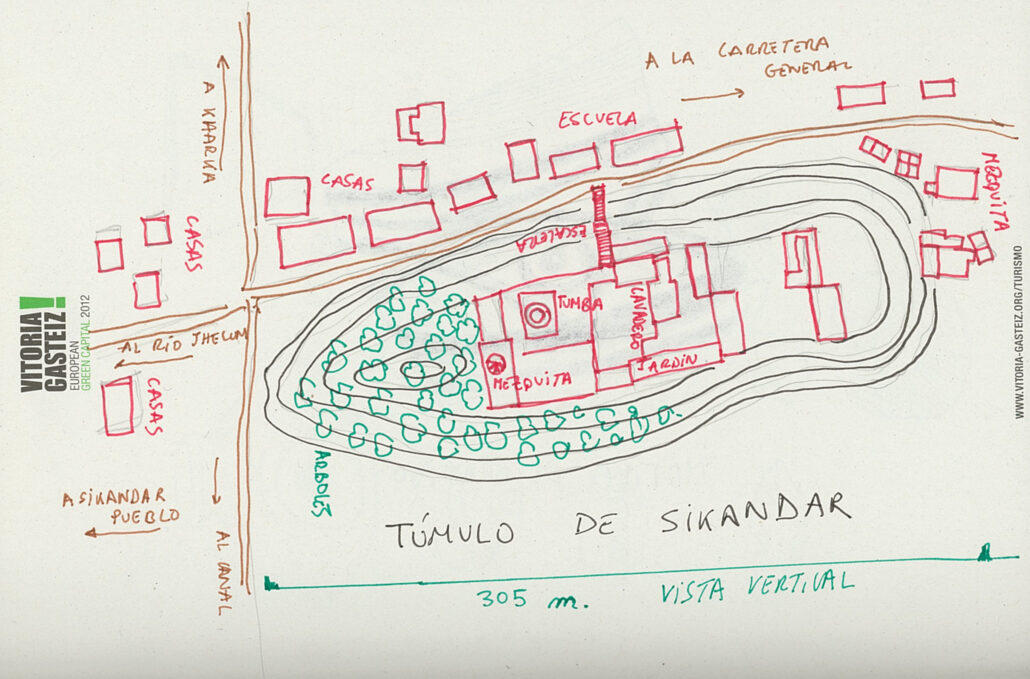 A LA CARRETERA
GENERAL
A KHARKA
ESCUELA
CASAS
CASAS
MEZQUITA
ESCALERA
TUMBA
LAVADERO
JARDIN
MEZQUITA
AL RÍO JHELUM
CASAS
ARBOLES
A SIKANDAR
PUEBLO
AL CANAL
TÚMULO DE SIKANDAR
305 m. VISTA VERTICAL
VITORIA!
GASTEIZ
EUROPEAN
GREEN CAPITAL 2012
WWW.VITORIA-GASTEIZ.ORG/TURISMO